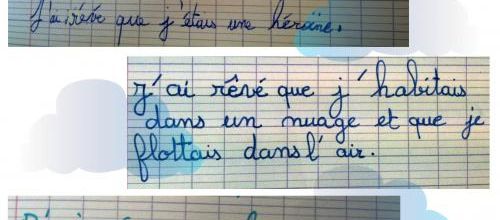 J'ai rêvé que j'étais une héroïne.
J'ai rêvé que j'habitais
dans un nuage et que je
flottais dans l'air.